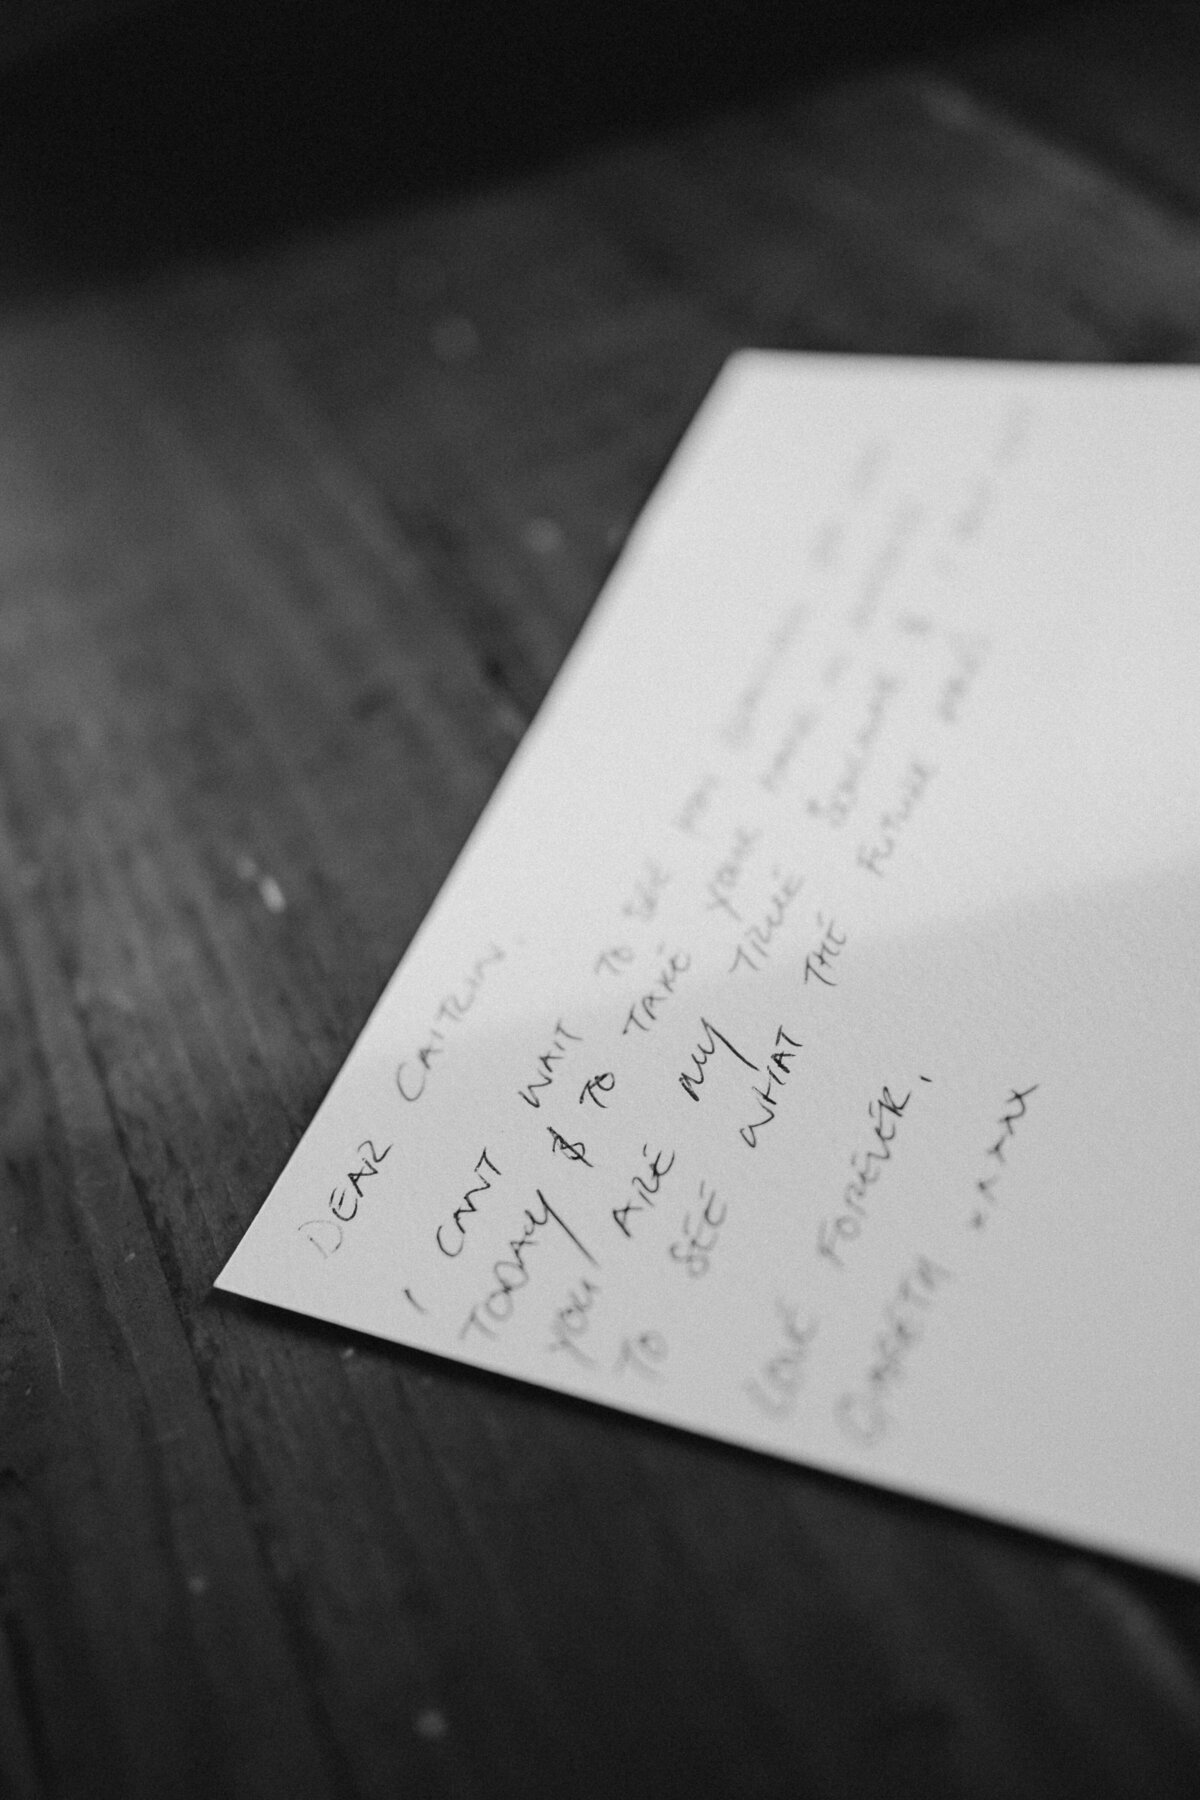 DEAR CAITLIN.
I CANT WAIT TO SEE YOU
TODAY & TO TAKE YOUR HAND IN
YOU ARE MY TRUE SOULMATE &
TO SEE WHAT THE FUTURE
LOVE FOREVER,
GARETH XXXXX